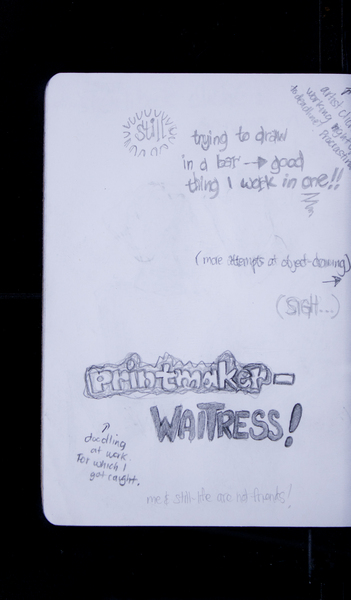 still
trying to draw
in a bar → good
thing I work in one!!
(more attempts at object-drawing)
(SIGH...)
printmaker-
WAITRESS!
doodling
at work.
For which I
got caught.
me & still-life are not friends!